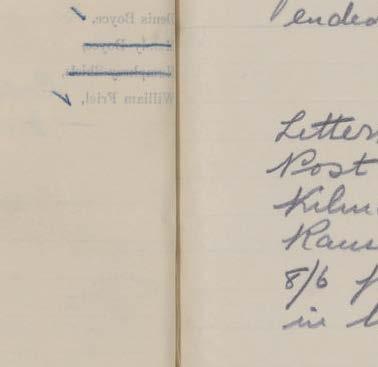 Denis Boyce.
William Friel,
ended
Letter
Post
Kilm
Ram
8/6 f
in l